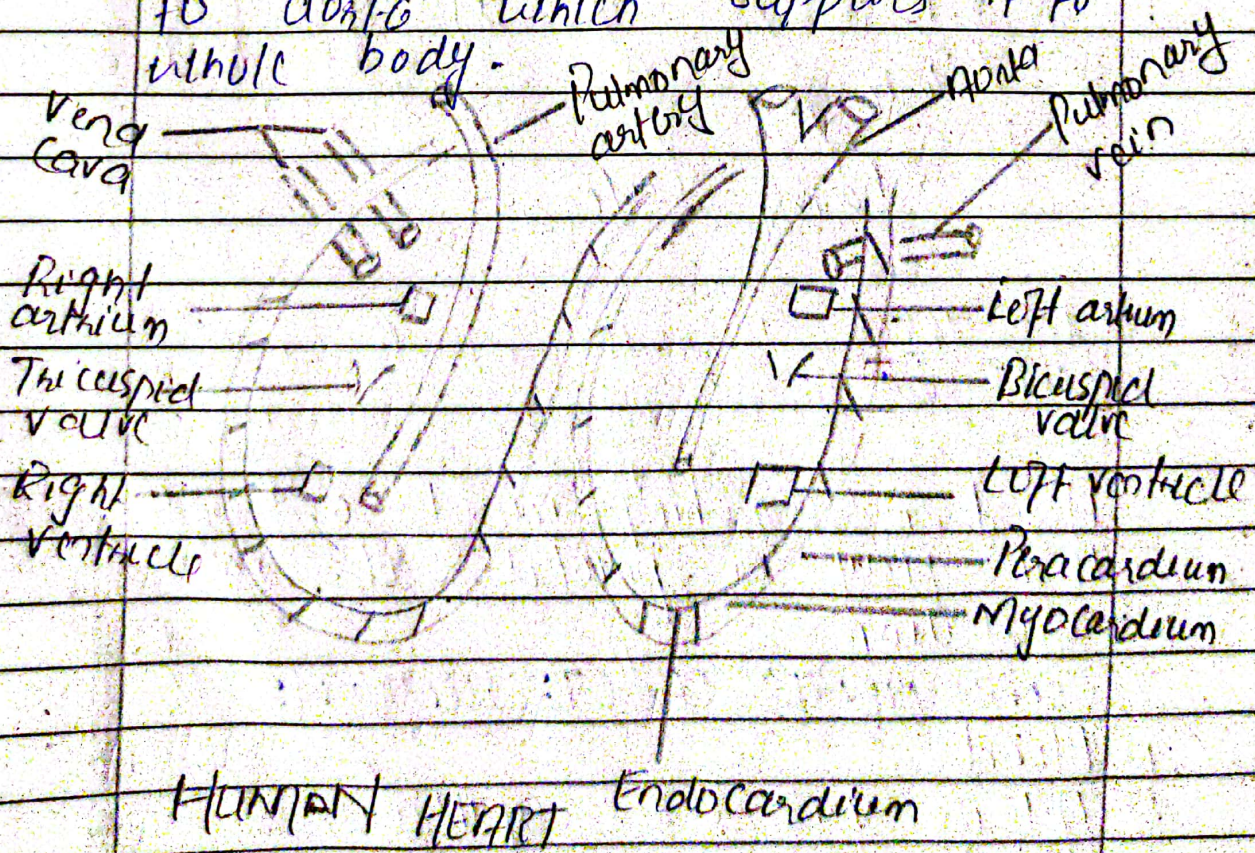 to aorta which supplies it to
whole body.
Vena
Cava
Pulmonary
artery
Aorta
Pulmonary
vein
Right
arthium
Left artium
Tricuspid
valve
Bicuspid
valve
Right
Ventricle
Left ventricle
Peracardium
Myocardium
Endocardium
HUMAN HEART